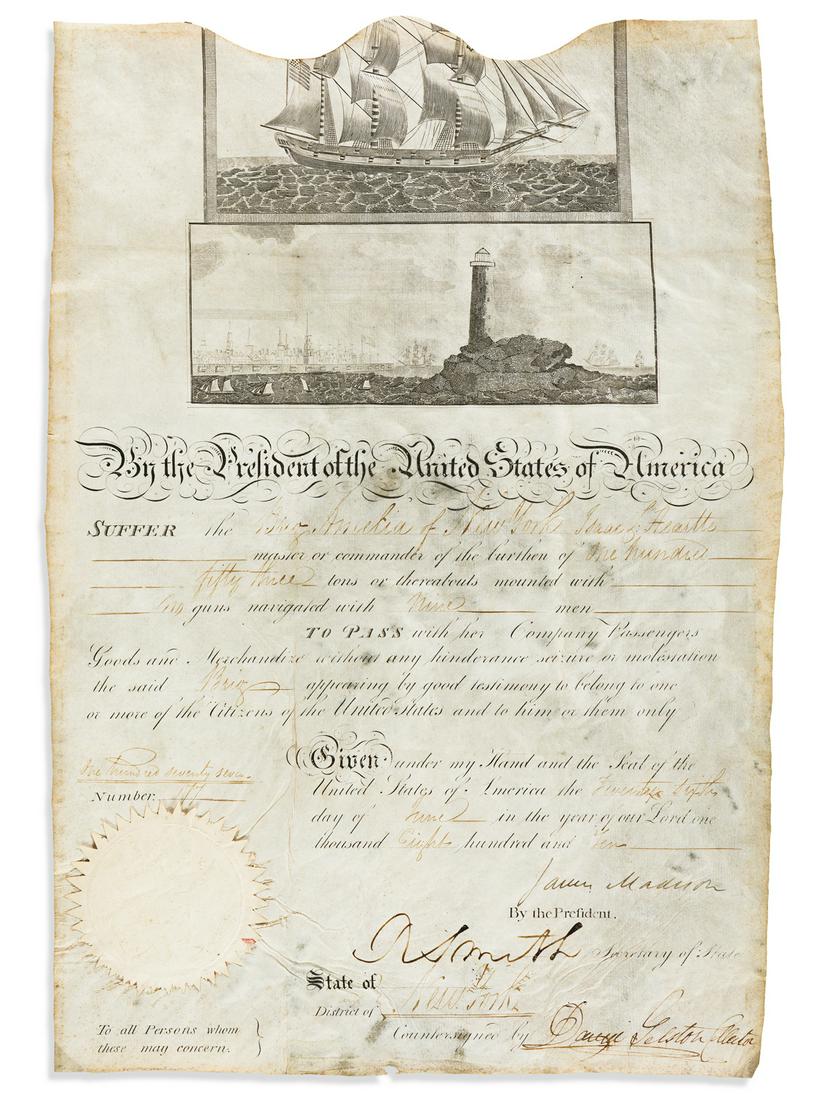 By the President of the United States of America
SUFFER the Brig Amelia of New York
master or commander of the burthen of One hundred
fifty three tons or thereabouts mounted with
No guns navigated with Nine men
TO PASS with her Company Passengers
Goods and Merchandize without any hinderance seizure or molestation
the said Brig appearing by good testimony to belong to one
or more of the Citizens of the United States and to him or them only
Given under my Hand and the Seal of the
United States of America the Twenty Sixth
day of June in the year of our Lord one
thousand Eight hundred and Ten
One hundred seventy seven.
Number. 177
James Madison
By the President.
R Smith Secretary of State
State of New York
District of
Countersigned by David Gelston Collector
To all Persons whom
these may concern.